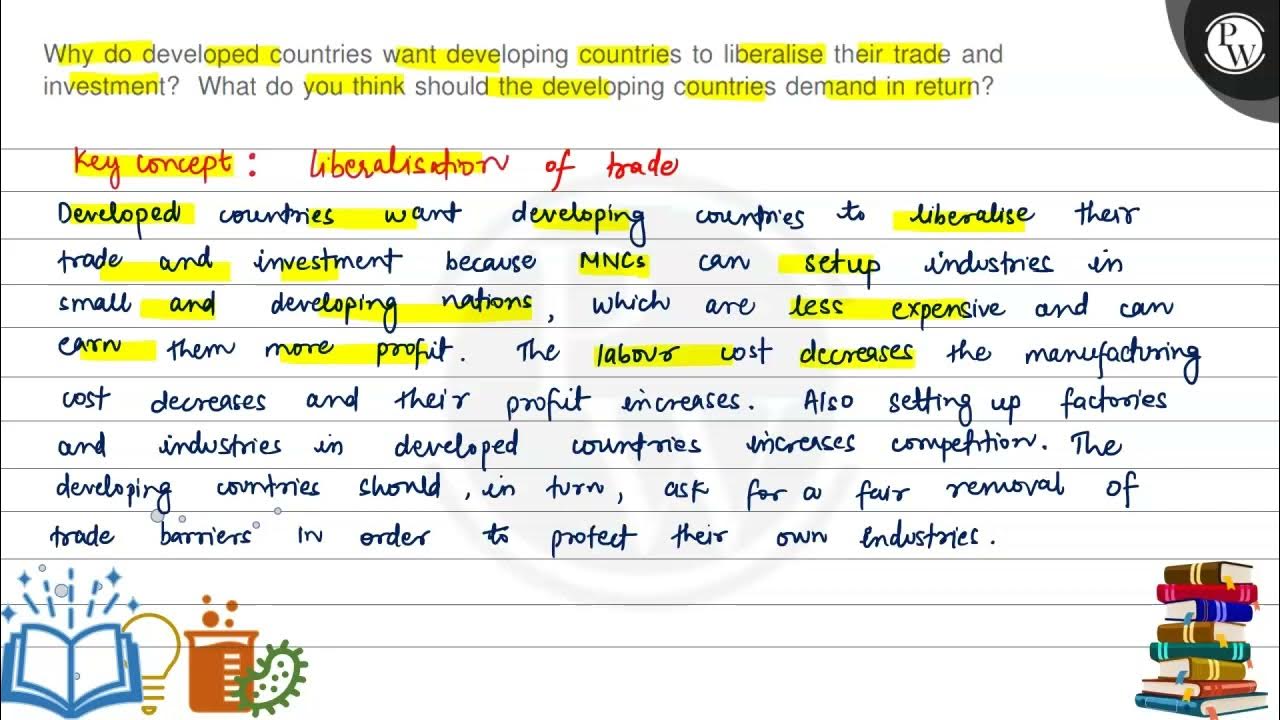 Why do developed countries want developing countries to liberalise their trade and
investment? What do you think should the developing countries demand in return?
PW
Key concept : liberalisation of trade
Developed countries want developing countries to liberalise their
trade and investment because MNCs can setup industries in
small and developing nations, which are less expensive and can
earn them more profit. The labour cost decreases the manufacturing
cost decreases and their profit increases. Also setting up factories
and industries in developed countries increases competition. The
developing countries should, in turn, ask for a fair removal of
trade barriers in order to protect their own industries.